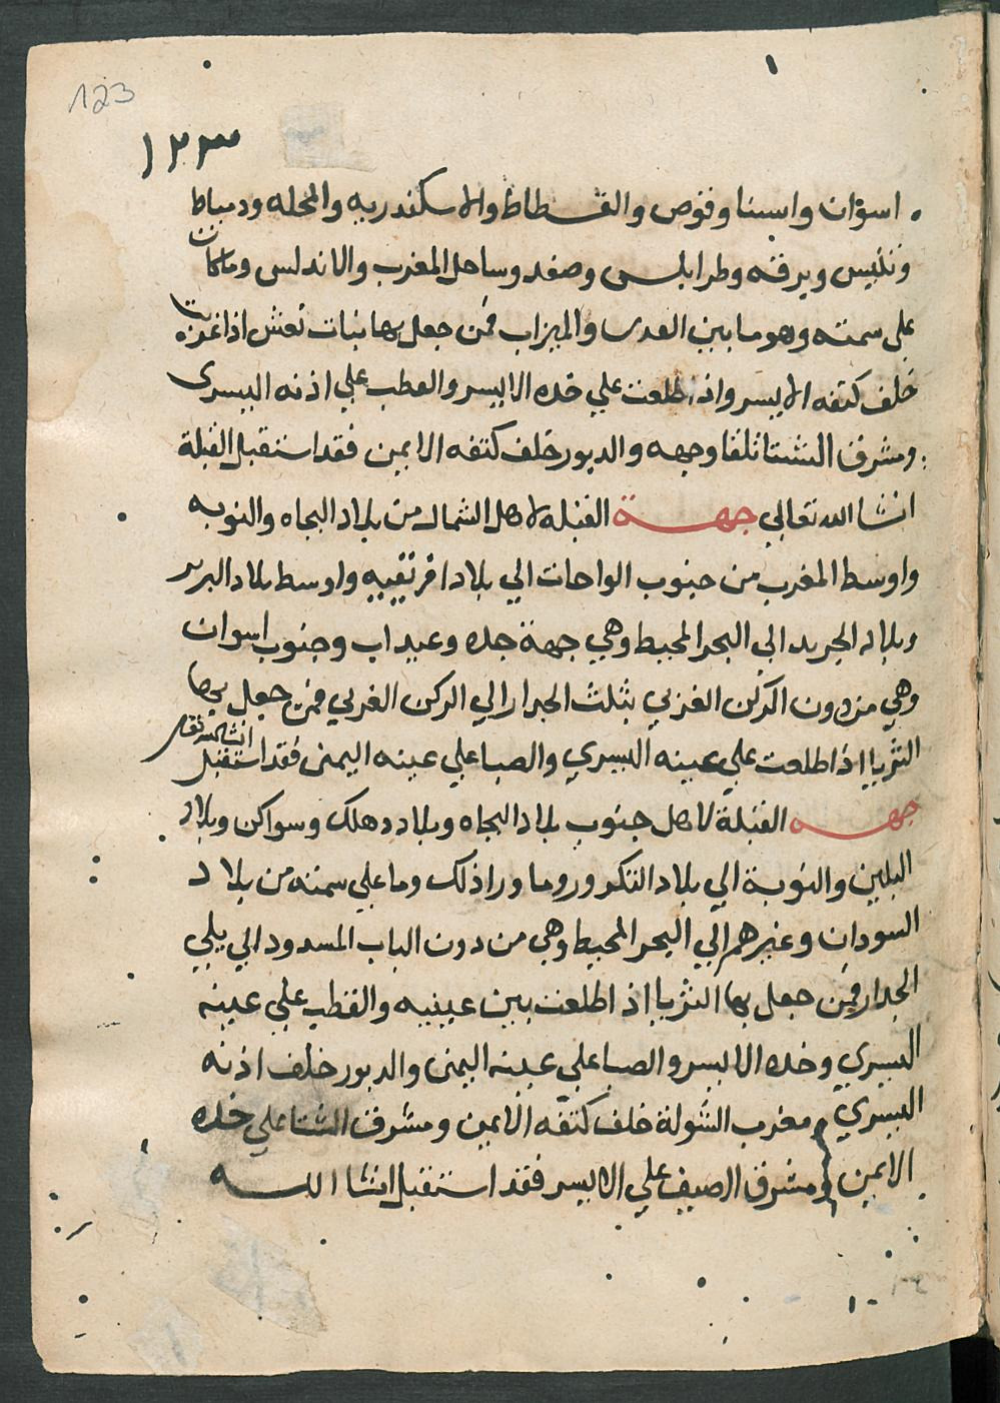 123
١٢٣
اسوان واسنا وقوص والفسطاط والاسكندريه والمحله ودمياط
وتنيس وبرقه وطرابلس وصفد وساحل المغرب والاندلس وماكان
على سمته وهو ما بين الغربي والميزاب فمن جعل بها بنات نعش اذا غربت
خلف كتفه الايسر واذا طلعت علي خده الايسر والقطب علي اذنه اليسرى
ومشرق الشتا تلقا وجهه والدبور خلف كتفه الايمن فقد استقبل القبلة
انشا الله تعالي جهة القبله لاهل الشمال من بلاد البجاه والنوبه
واوسط المغرب من جنوب الواحات الي بلاد افريقيه واوسط بلاد البربر
وبلاد الجريد الي البحر المحيط وهي جهة جده وعيداب وجنوب اسوان
وهي من دون الركن الغربي بثلث الجدار الي الركن الغربي فمن جعل بها
الثريا اذا طلعت علي عينه اليسري والصبا علي عينه اليمنى فقد استقبل انشا الله تعالى
جهه القبلة لاهل جنوب بلاد البجاه وبلاد دهلك وسواكن وبلاد
البلين والنوبة الي بلاد التكرور وما ورا ذلك وما علي سمته من بلاد
السودان وغيرهم الي البحر المحيط وهي من دون الباب المسدود الي يلي
الجدار فمن جعل بها الثريا اذ اطلعت بين عينيه والقطب علي عينه
اليسري وخده الايسر والصبا علي عينه اليمنى والدبور خلف اذنه
اليسري ومغرب الشولة خلف كتفه الايمن ومشرق الشتا علي خده
الايمن ومشرق الصيف علي الايسر فقد استقبل انشا الله